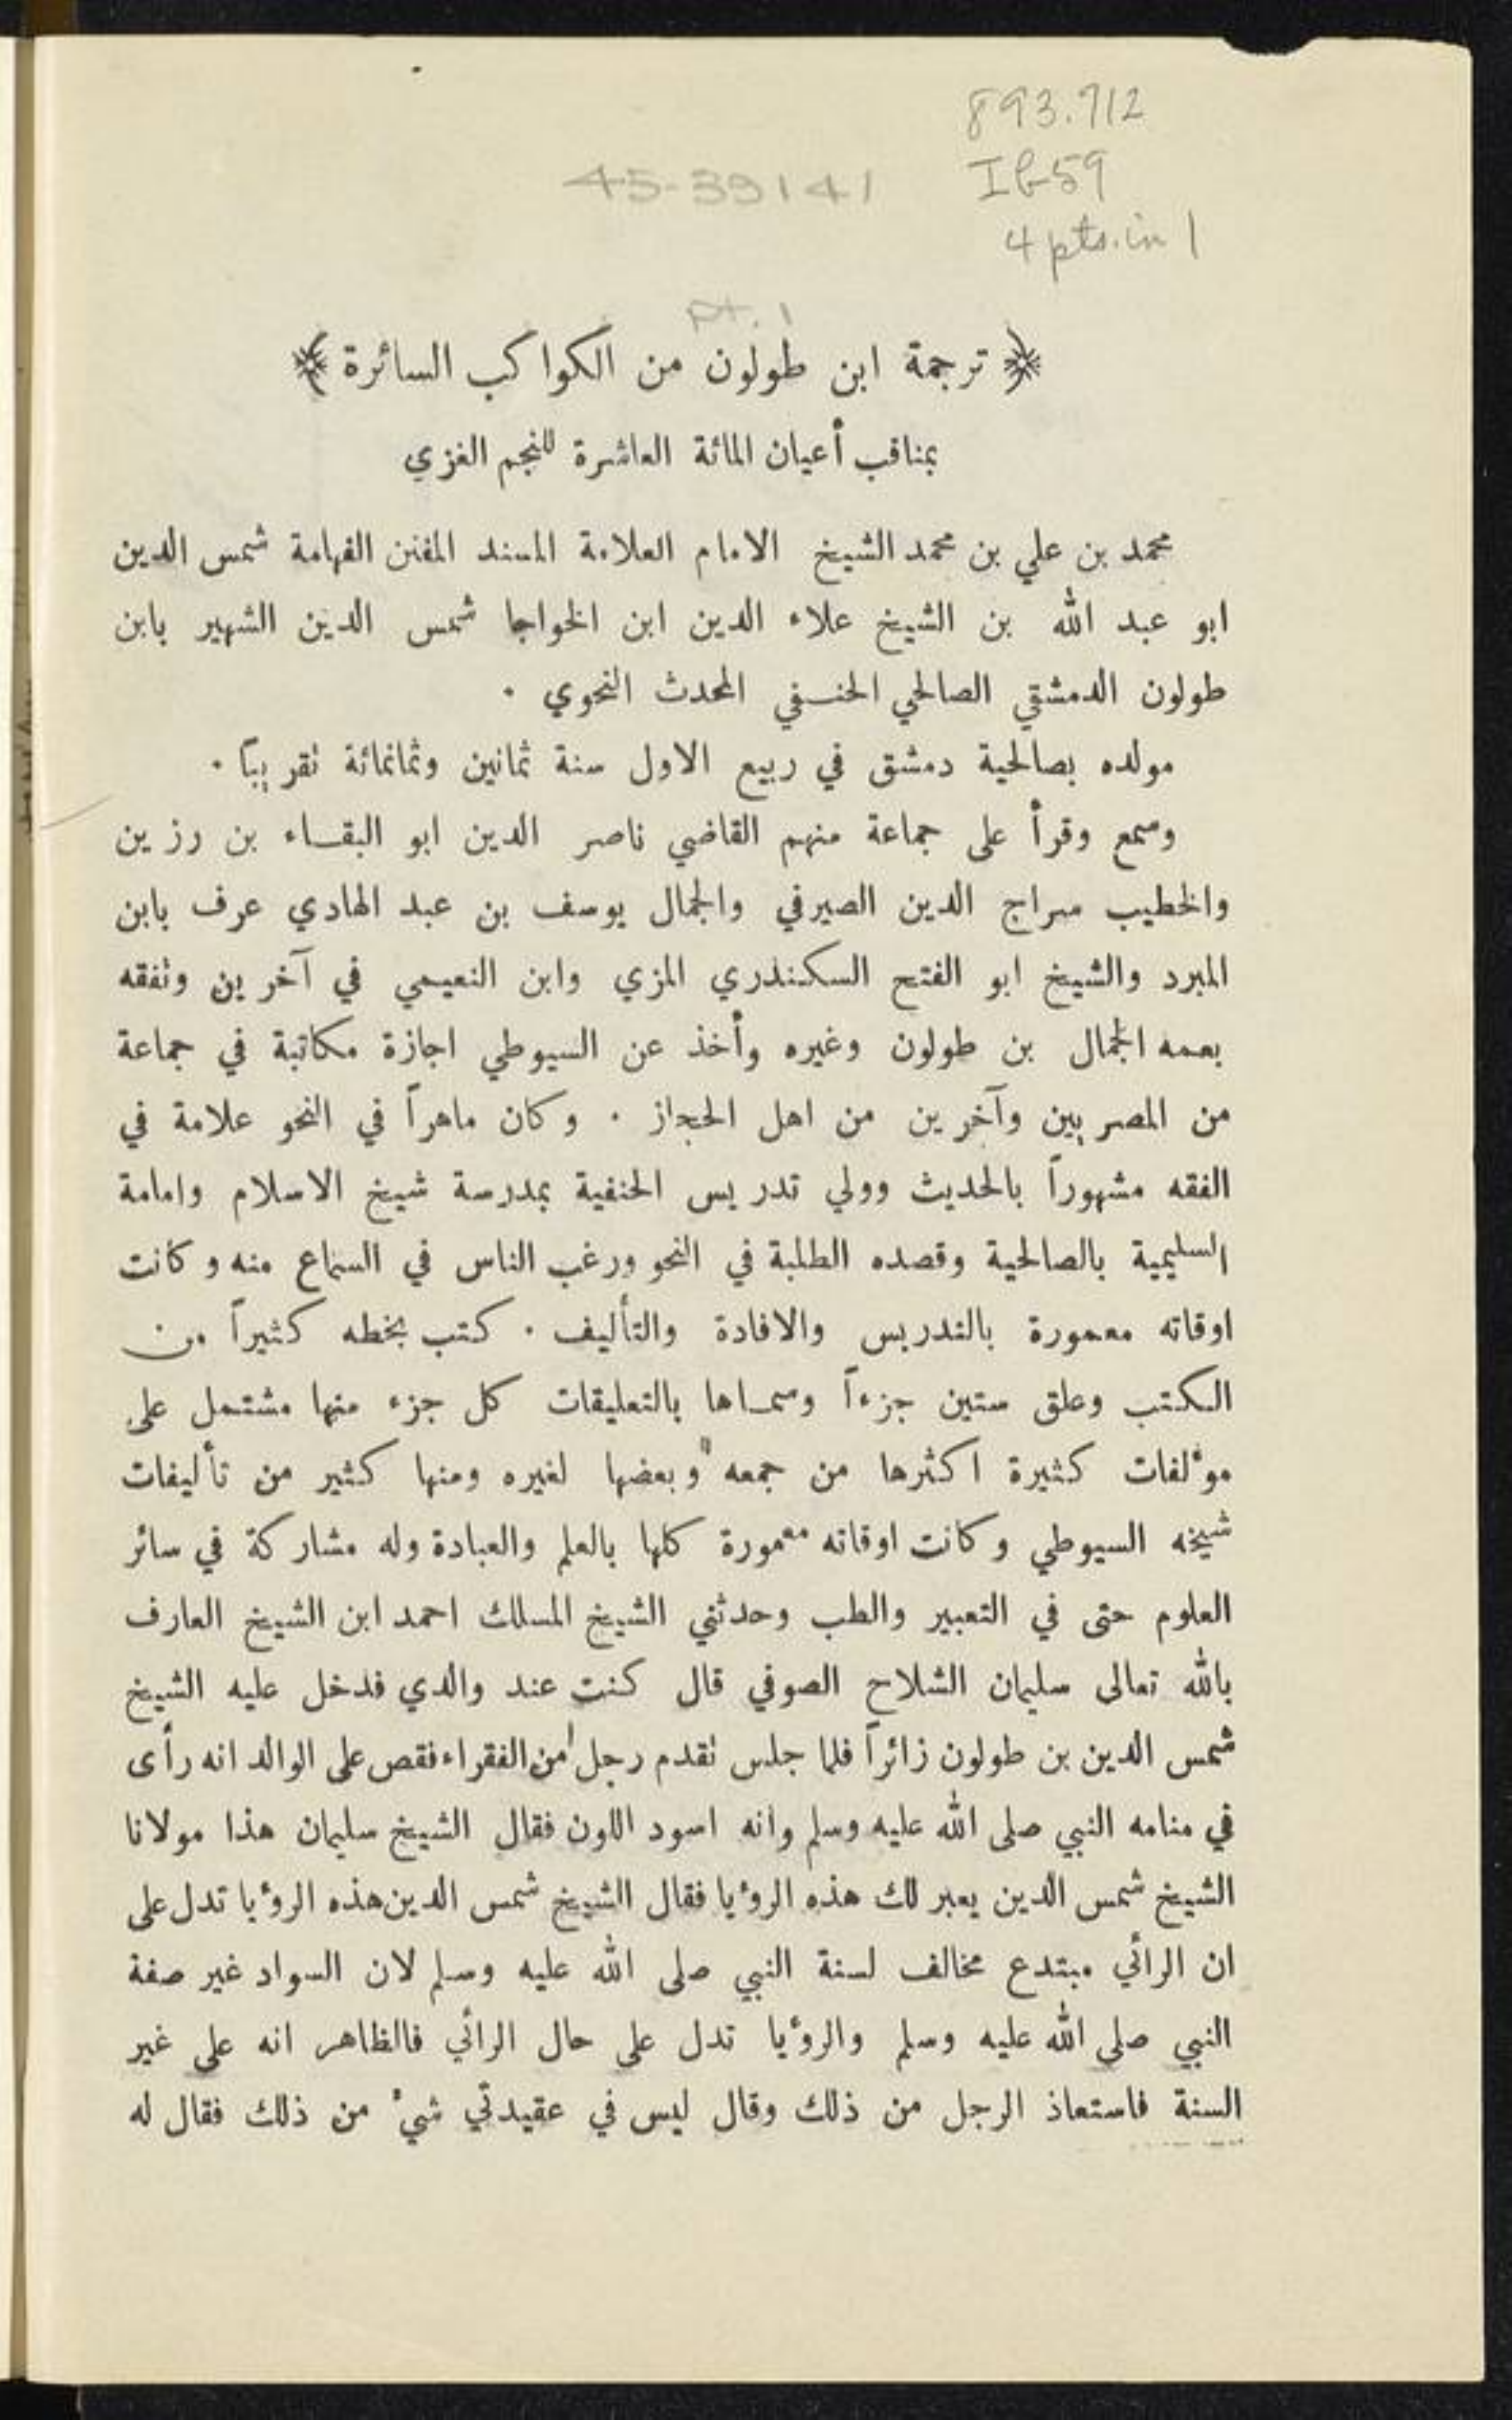 893.712
45-39141
Ib59
4 pts. in 1
pt. 1
﴿ ترجمة ابن طولون من الكواكب السائرة ﴾
بمناقب أعيان المائة العاشرة للنجم الغزي
محمد بن علي بن محمد الشيخ الامام العلامة المسند المفنن الفهامة شمس الدين
ابو عبد الله بن الشيخ علاء الدين ابن الخواجا شمس الدين الشهير بابن
طولون الدمشقي الصالحي الحنفي المحدث النحوي .
مولده بصالحية دمشق في ربيع الاول سنة ثمانين وثمانمائة تقريباً .
وسمع وقرأ على جماعة منهم القاضي ناصر الدين ابو البقاء بن رزين
والخطيب سراج الدين الصيرفي والجمال يوسف بن عبد الهادي عرف بابن
المبرد والشيخ ابو الفتح السكندري المزي وابن النعيمي في آخرين وتفقه
بعمه الجمال بن طولون وغيره وأخذ عن السيوطي اجازة مكاتبة في جماعة
من المصريين وآخرين من اهل الحجاز . وكان ماهراً في النحو علامة في
الفقه مشهوراً بالحديث وولي تدريس الحنفية بمدرسة شيخ الاسلام وامامة
السليمية بالصالحية وقصده الطلبة في النحو ورغب الناس في السماع منه وكانت
اوقاته معمورة بالتدريس والافادة والتأليف . كتب بخطه كثيراً من
الكتب وعلق ستين جزءاً وسماها بالتعليقات كل جزء منها مشتمل على
مؤلفات كثيرة اكثرها من جمعه وبعضها لغيره ومنها كثير من تأليفات
شيخه السيوطي وكانت اوقاته معمورة كلها بالعلم والعبادة وله مشاركة في سائر
العلوم حتى في التعبير والطب وحدثني الشيخ المسلك احمد ابن الشيخ العارف
بالله تعالى سليمان الشلاح الصوفي قال كنت عند والدي فدخل عليه الشيخ
شمس الدين بن طولون زائراً فلما جلس تقدم رجل من الفقراء فقص على الوالد انه رأى
في منامه النبي صلى الله عليه وسلم وانه اسود اللون فقال الشيخ سليمان هذا مولانا
الشيخ شمس الدين يعبر لك هذه الرؤيا فقال الشيخ شمس الدين هذه الرؤيا تدل على
ان الرائي مبتدع مخالف لسنة النبي صلى الله عليه وسلم لان السواد غير صفة
النبي صلى الله عليه وسلم والرؤيا تدل على حال الرائي فالظاهر انه على غير
السنة فاستعاذ الرجل من ذلك وقال ليس في عقيدتي شيء من ذلك فقال له